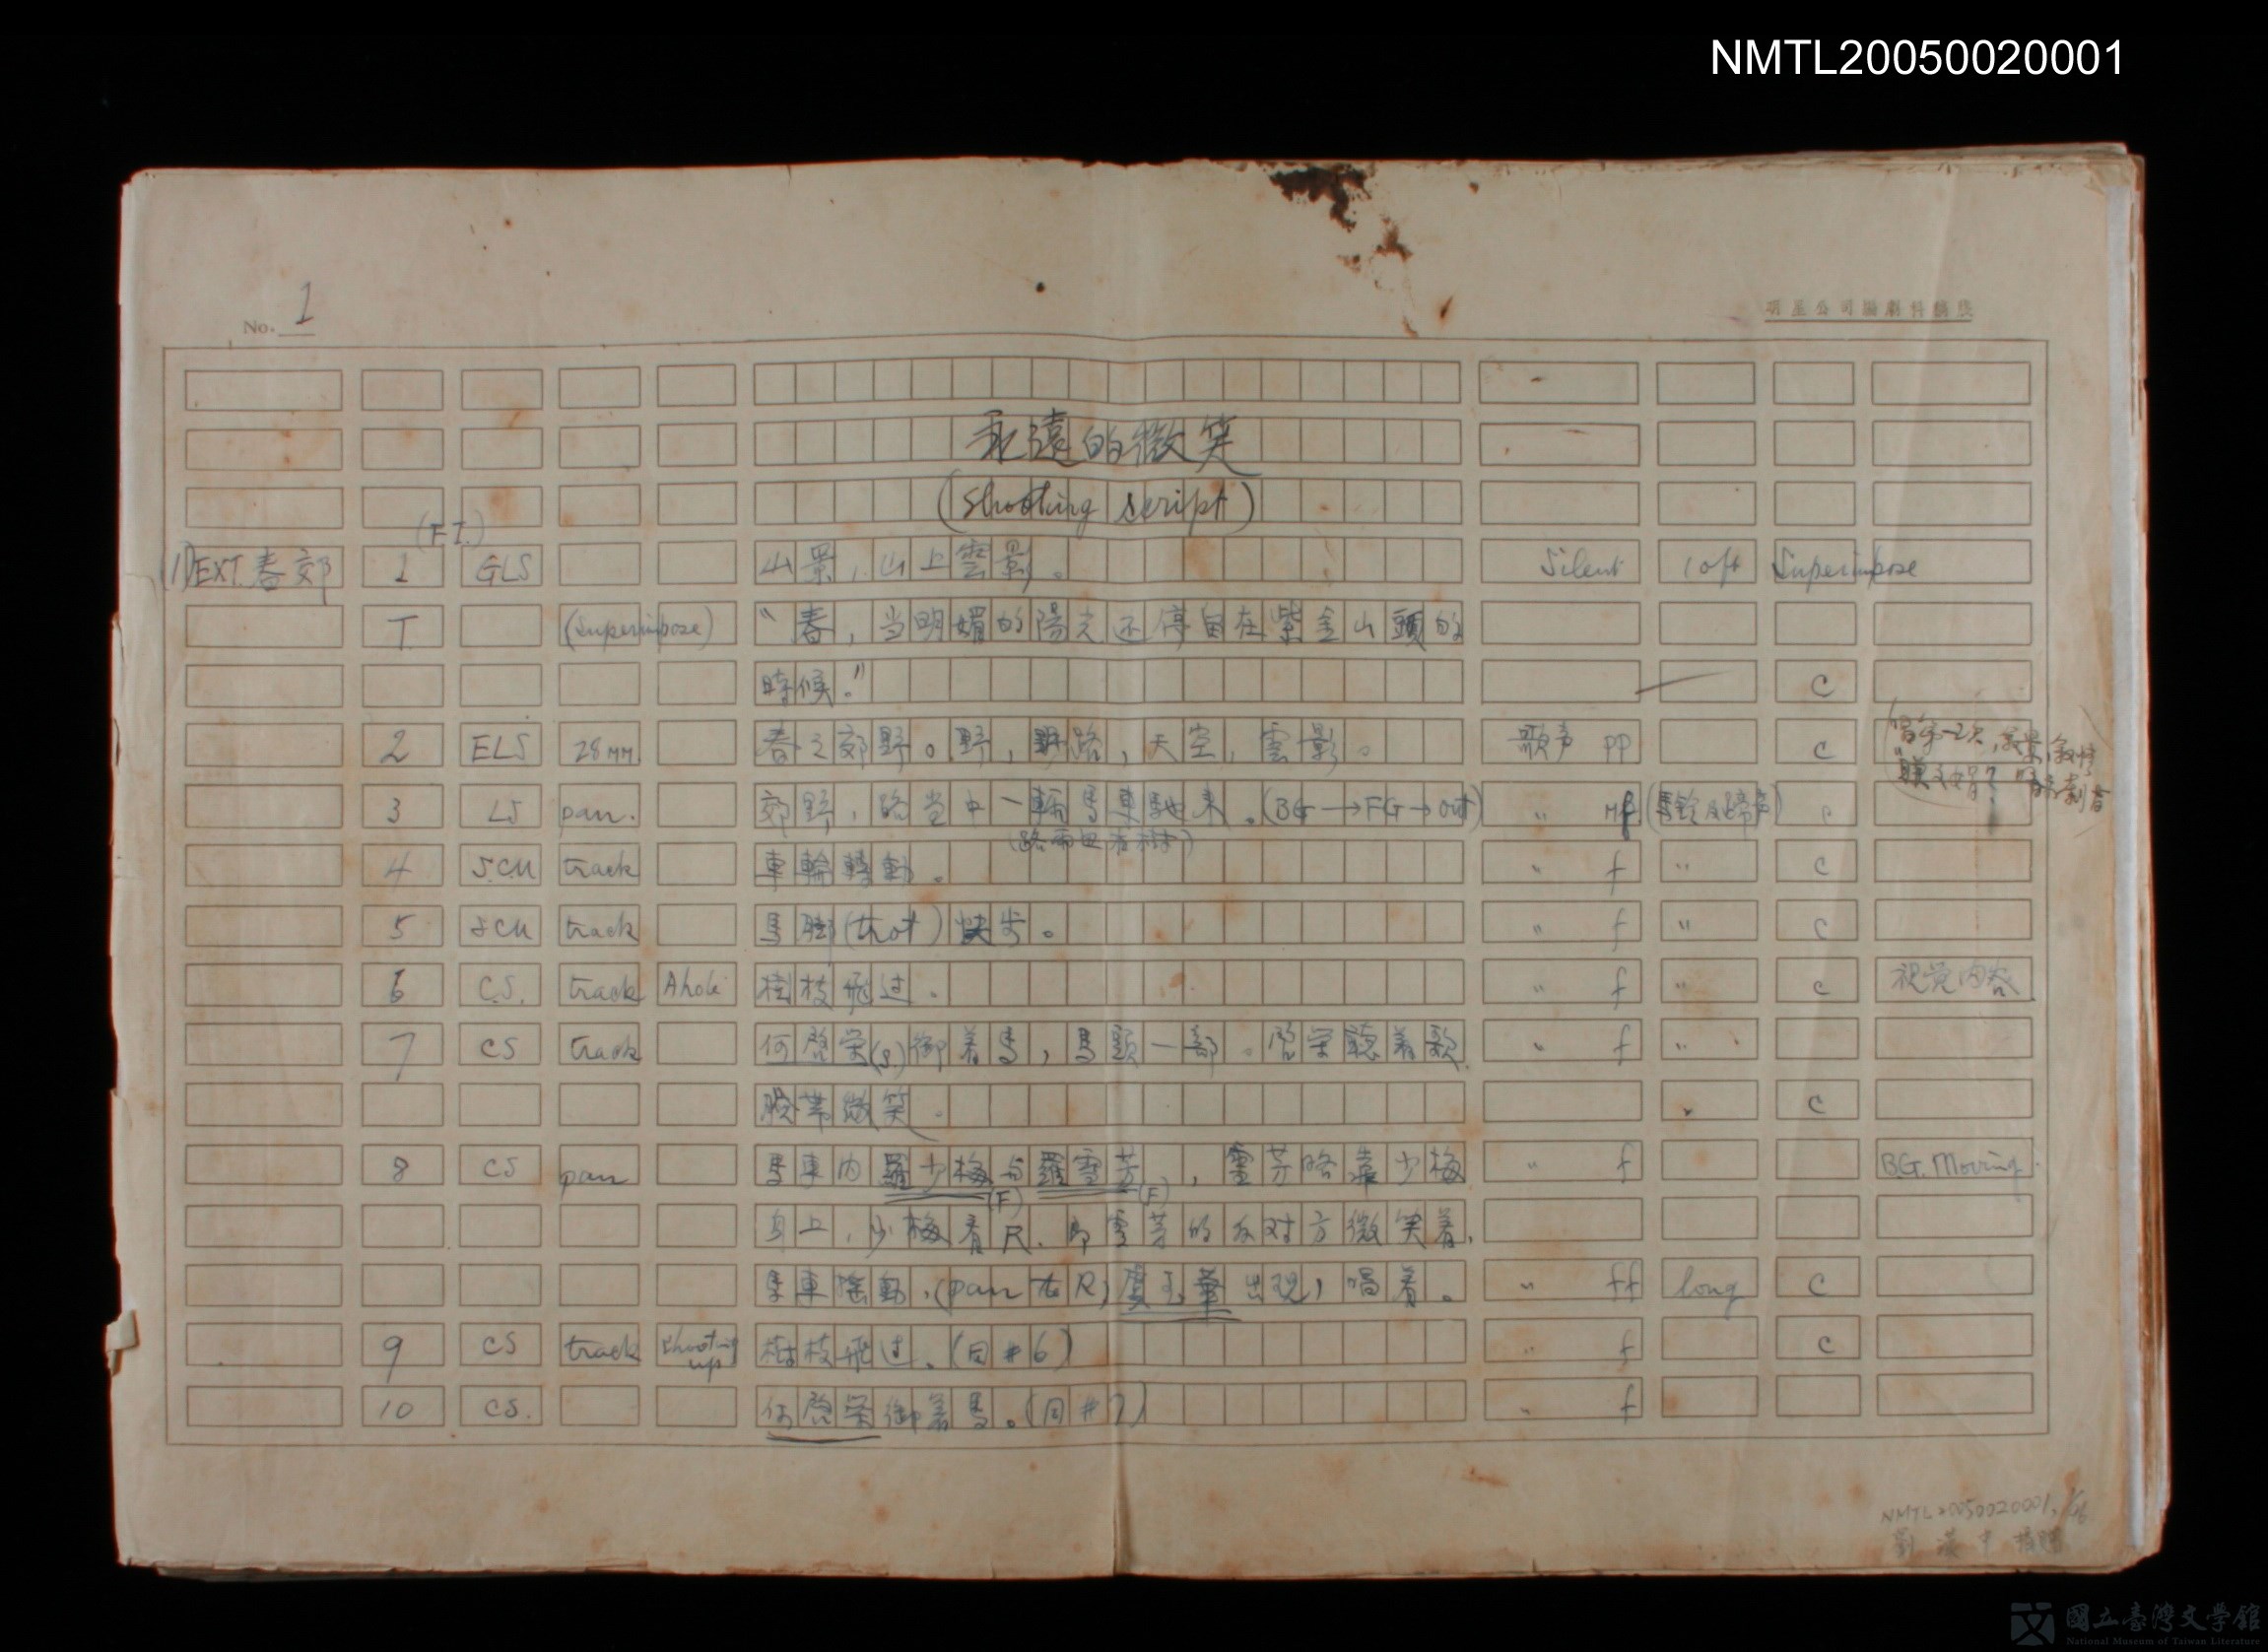 NMTL20050020001
No. 1
明星公司編劇科稿牋
永遠的微笑
(Shooting script)
(F.I.)
(1) EXT. 春郊 1 GLS 山景,山上雲影。 Silent 10ft Superimpose
T (Superimpose) "春,当明媚的陽光还停留在紫金山頭的
時候。" C
2 ELS 28mm. 春之郊野。野,野路,天空,雲影。 歌声 pp C
3 LS pan. 郊野,路当中一輛馬車馳来。(BG→FG→out) " mf (馬鈴及蹄声) C
4 S.CU track 車輪轉動。 " f " C
5 SCU track 馬脚(trot)快步。 " f " C
6 C.S. track A hole 樹枝飛过。 " f " C 視覚内容
7 CS track 何啓荣(S)御着馬,馬頸一部。啓荣聽着歌 " f "
臉帶微笑。 " C
8 CS pan 馬車内羅少梅与羅雪芳,雪芳略靠少梅 " f B.G. Moving.
(F) (F)
身上,少梅看R.即雪芳的反対方微笑着,
馬車摇動,(pan 右R)虞玉華出現,唱着。 " ff long C
9 CS track Shooting up 樹枝飛过。(同#6) " f C
10 CS. 何啓荣御着馬。(同#7) " f
NMTL20050020001,
劉漢中捐贈
國立臺灣文學館
National Museum of Taiwan Literature